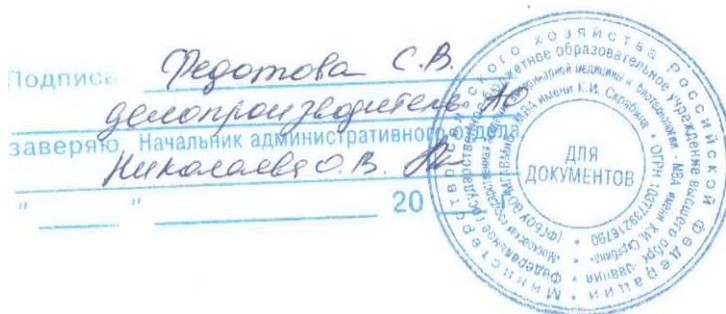 Подпись Федотова С.В.
делопроизводитель АО
заверяю, Начальник административного отдела
Николаева О.В.
" " 20 г.
Министерство сельского хозяйства Российской Федерации
Федеральное государственное бюджетное образовательное учреждение высшего образования
«Московская государственная академия ветеринарной медицины и биотехнологии - МВА имени К.И. Скрябина»
(ФГБОУ ВО МГАВМиБ - МВА имени К.И. Скрябина) * ОГРН 1037739216790 *
ДЛЯ
ДОКУМЕНТОВ